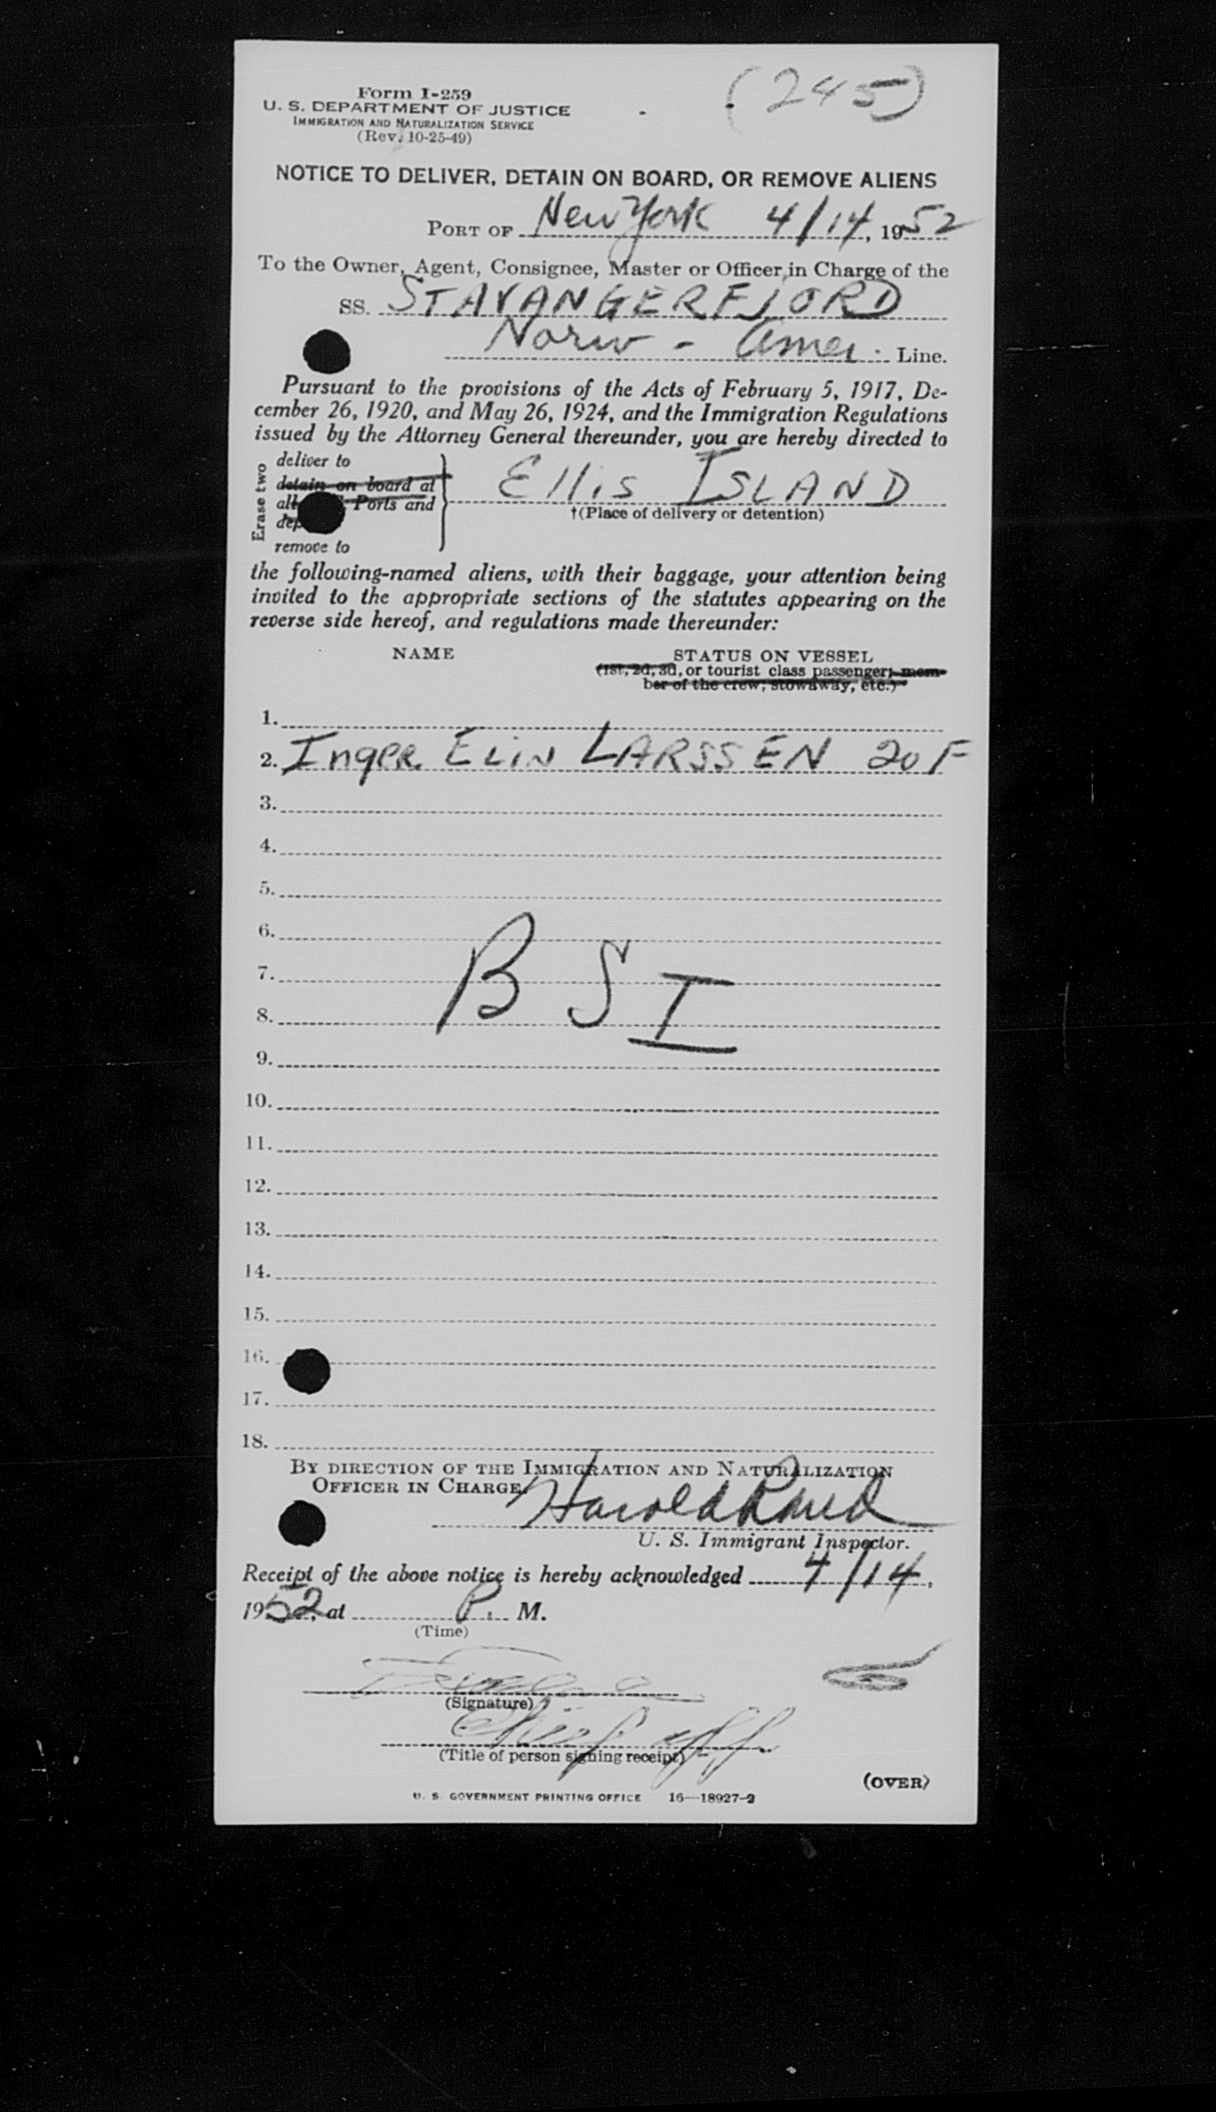 (245)
Form I-259
U. S. DEPARTMENT OF JUSTICE
IMMIGRATION AND NATURALIZATION SERVICE
(Rev. 10-25-49)
NOTICE TO DELIVER, DETAIN ON BOARD, OR REMOVE ALIENS
PORT OF New York 4/14, 1952
To the Owner, Agent, Consignee, Master or Officer in Charge of the
SS. STAVANGERFJORD
Norw - Amer. Line.
Pursuant to the provisions of the Acts of February 5, 1917, De-
cember 26, 1920, and May 26, 1924, and the Immigration Regulations
issued by the Attorney General thereunder, you are hereby directed to
Erase two
deliver to
detain on board at
all Ports and
dep
remove to
Ellis ISLAND
†(Place of delivery or detention)
the following-named aliens, with their baggage, your attention being
invited to the appropriate sections of the statutes appearing on the
reverse side hereof, and regulations made thereunder:
NAME STATUS ON VESSEL
(1st, 2d, 3d, or tourist class passenger; mem-
ber of the crew; stowaway, etc.)
1.
2. Inger Elin LARSSEN 20 F
3.
4.
5.
6.
7.
8.
BSI
9.
10.
11.
12.
13.
14.
15.
16.
17.
18.
BY DIRECTION OF THE IMMIGRATION AND NATURALIZATION
OFFICER IN CHARGE.
Harold
U. S. Immigrant Inspector.
Receipt of the above notice is hereby acknowledged 4/14,
1952, at P. M.
(Time)
(Signature)
(Title of person signing receipt)
(OVER)
U. S. GOVERNMENT PRINTING OFFICE 16—18927-2